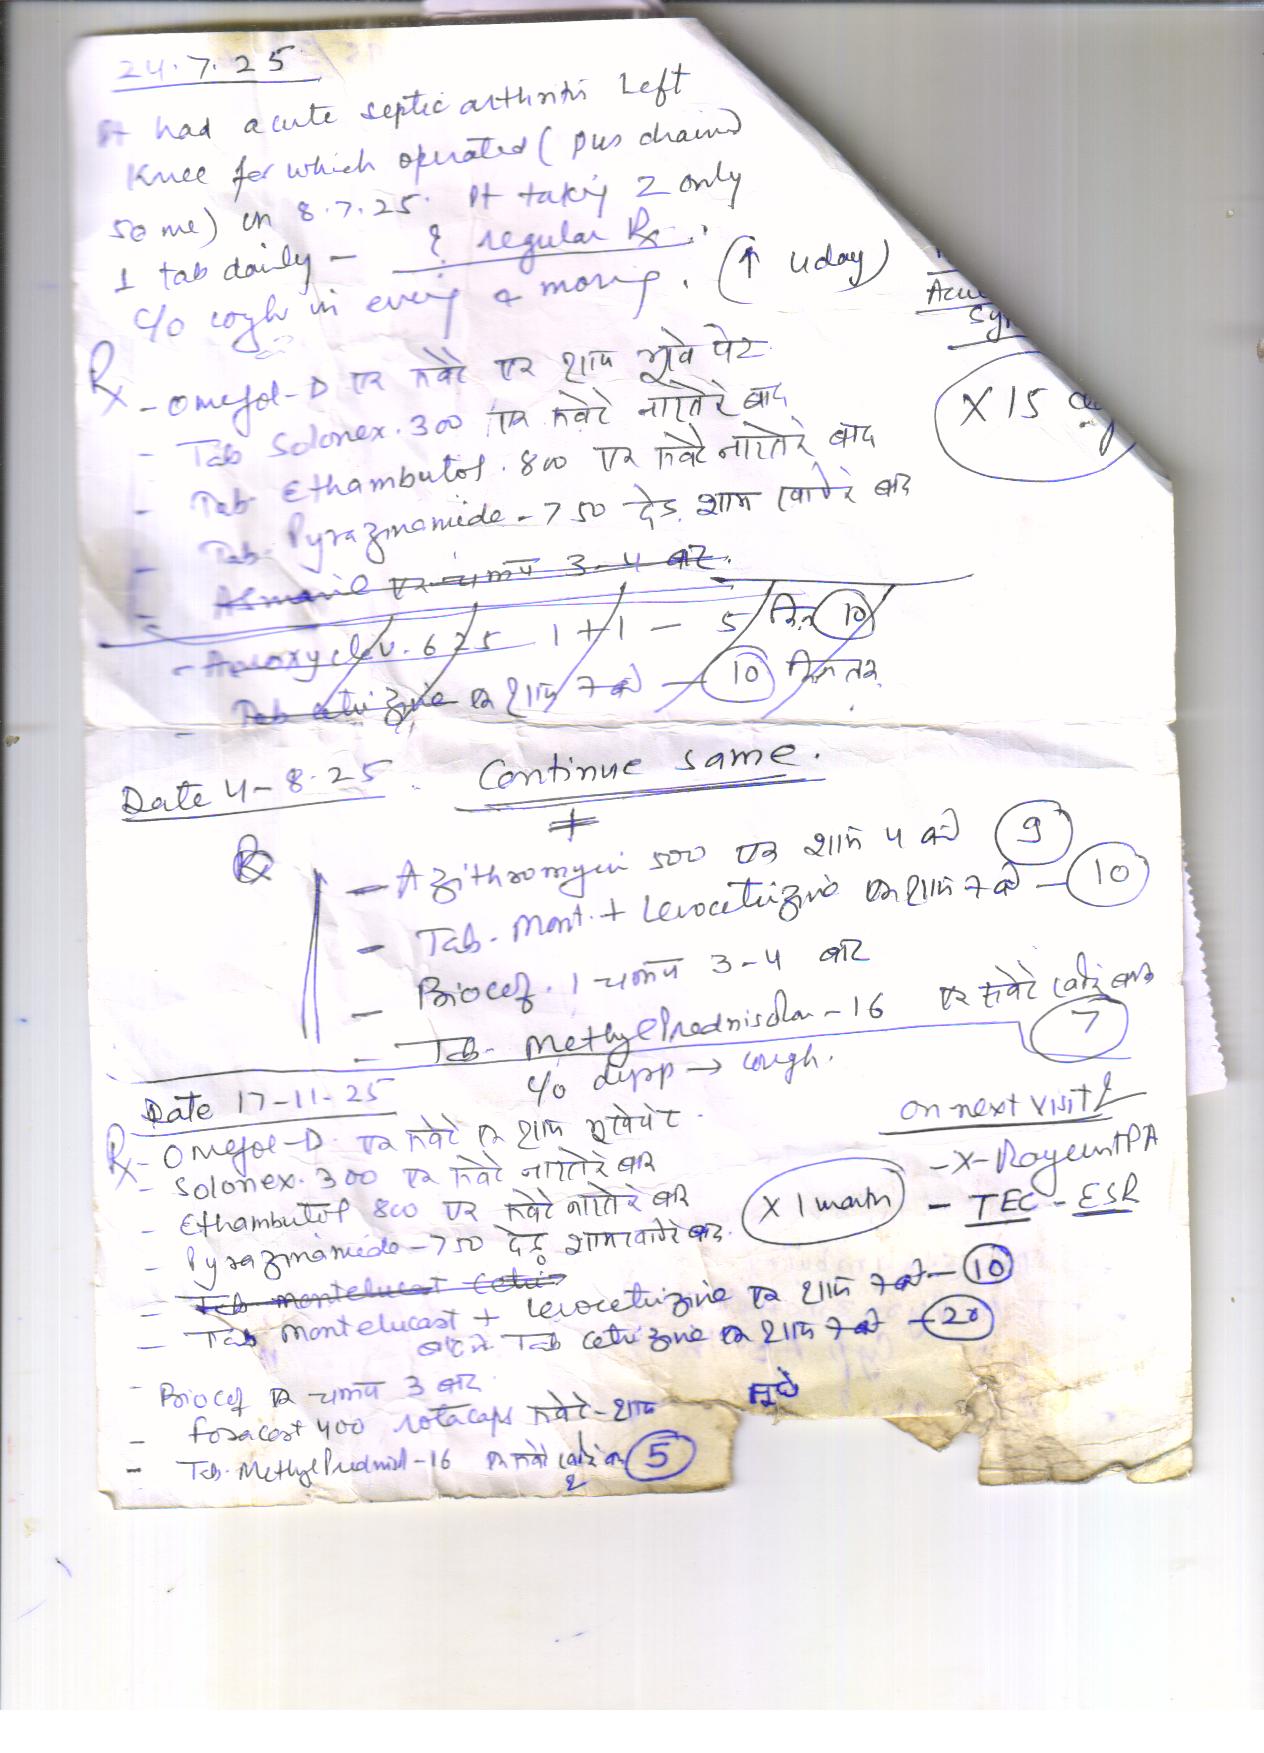 24.7.25
Pt had acute septic arthritis Left
Knee for which operated (pus drained
50 ml) on 8.7.25. Pt taking 2 only
1 tab daily - ? regular Rx.
c/o cough in evening & morning. (↑ 4 day)
Acu
Sy
Rx
- Omefol-D एक सवेरे एक शाम भूखे पेट
- Tab Solonex. 300 एक सवेरे नाश्ते बाद
- Tab Ethambutol. 800 एक सवेरे नाश्ते बाद
- Tab. Pyrazinamide - 750 डेढ़ शाम खाने बाद
X 15 day
एक चम्मच 3-4 बार.
- Amoxyclev. 625 1+1 - 5 दिन 10
- Tab cetrizine एक शाम 7 बजे - 10 दिन तक
Date 4-8.25 Continue same.
+
Rx
- Azithromycin 500 एक शाम 4 बजे 9
- Tab. Mont. + Levocetrizine एक शाम 7 बजे - 10
- Biocef. 1 चम्मच 3-4 बार
- Tab- MethylPrednisolon - 16 एक सवेरे बाद 7
Date 17-11-25 c/o → cough.
Rx - Omefol-D. एक सवेरे एक शाम भूखे पेट.
- Solonex. 300 एक सवेरे नाश्ते बाद
- Ethambutol 800 एक सवेरे नाश्ते बाद
- Pyrazinamide - 750 डेढ़ शाम खाने बाद.
X 1 month
On next visit
- X-Ray PA
- TEC - ESR
- Tab montelucast Cetri
- Tab Montelucast + Levocetrizine एक शाम 7 बजे - 10
Tab Cetrizine एक शाम 7 बजे - 20
- Biocef एक चम्मच 3 बार
- foracort 400 rotacaps सवेरे - शाम
- Tab. MethylPrednisol - 16 एक सवेरे 5